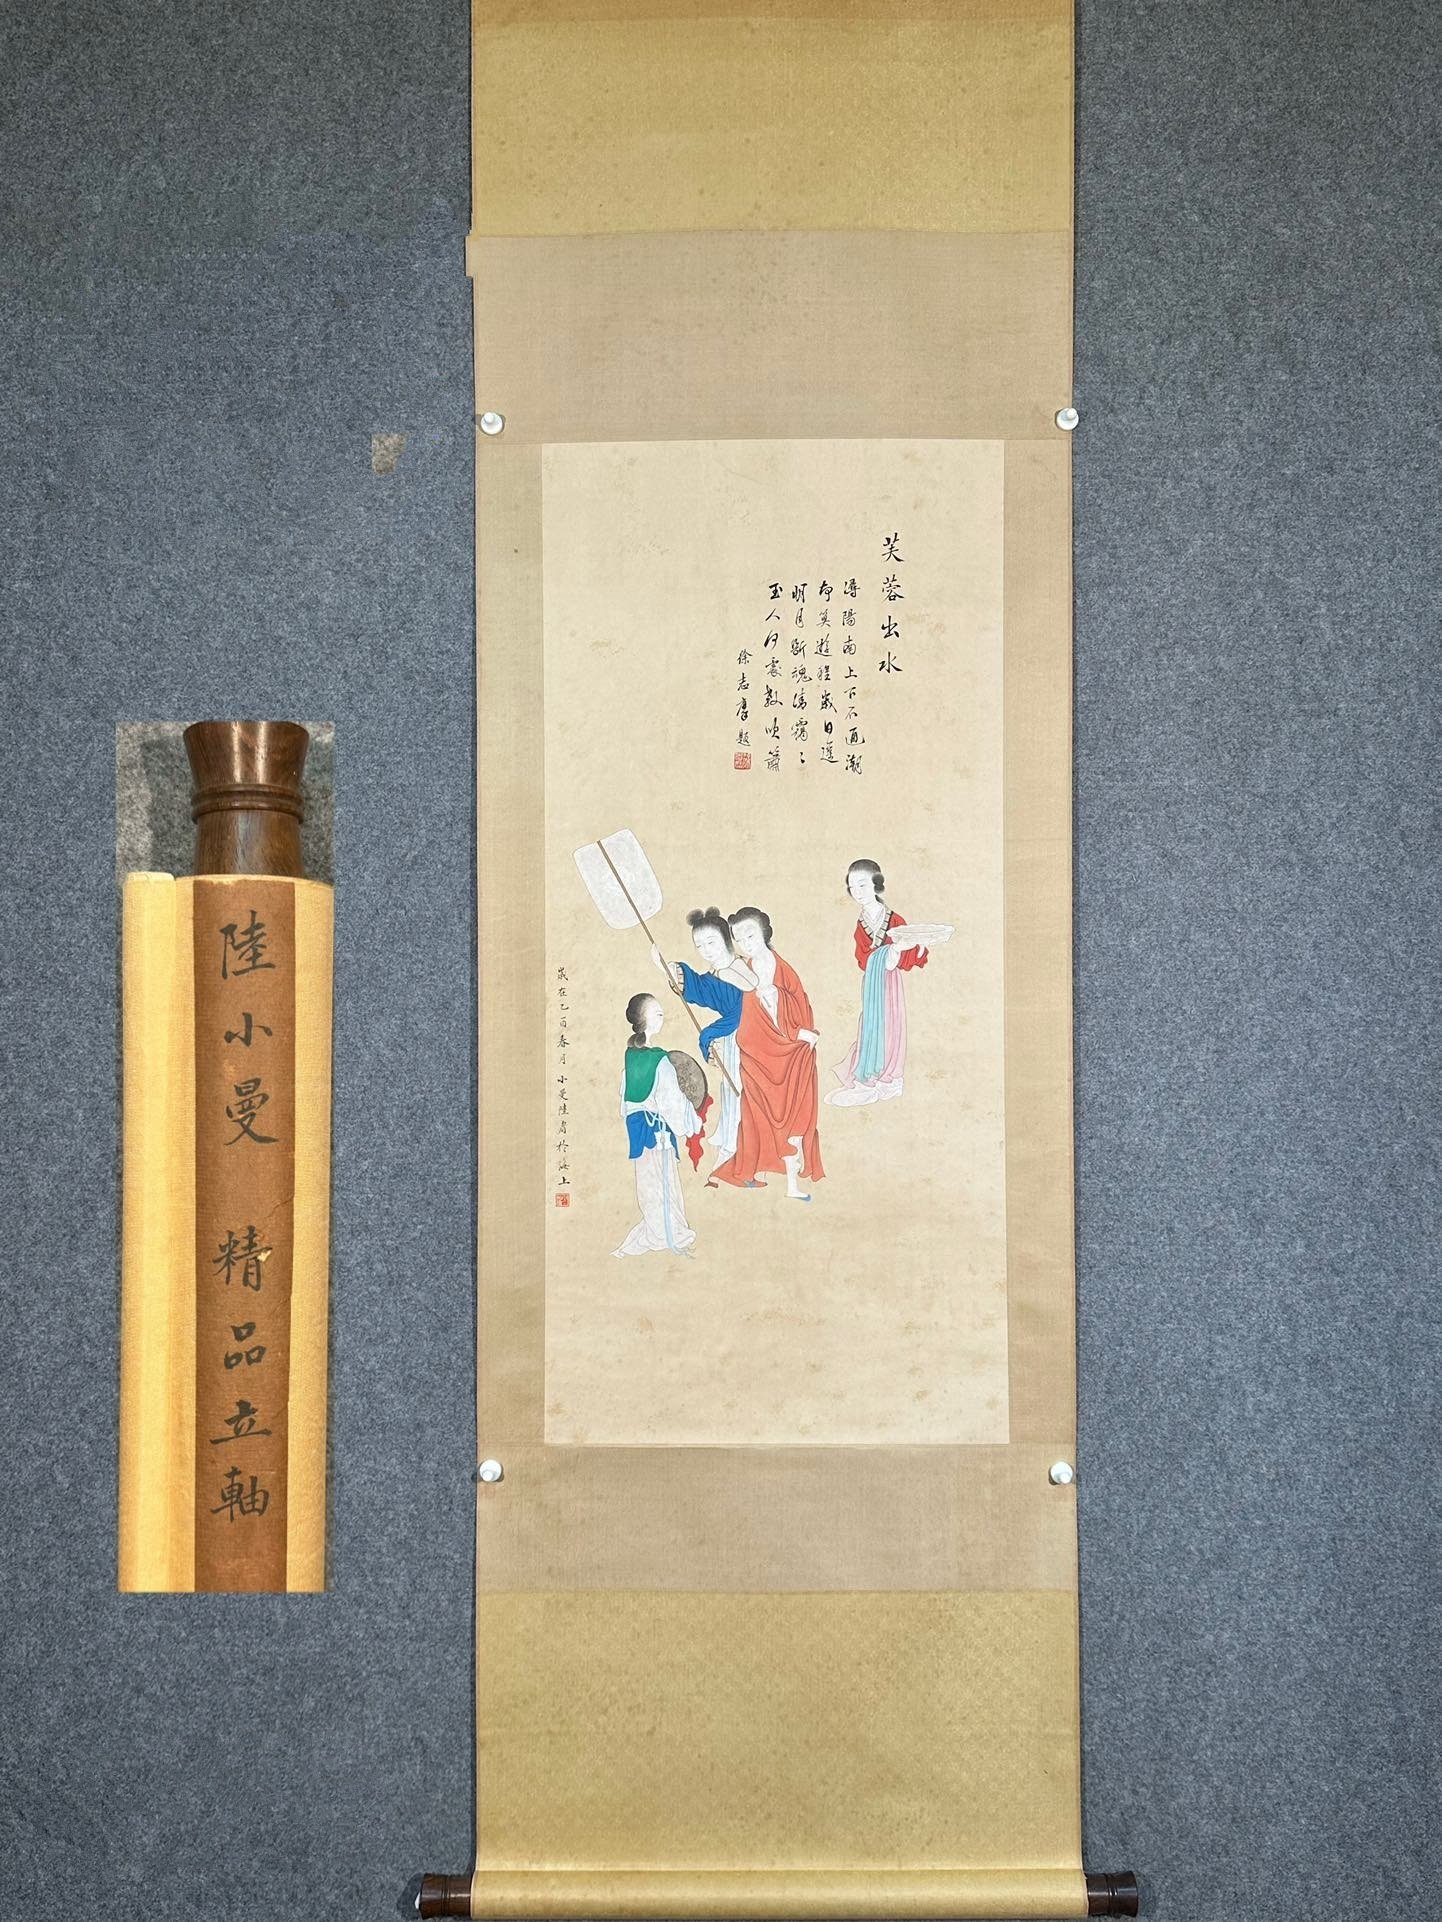 芙蓉出水
潯陽南上不通潮
却算遊程歲日遥
明月斷魂清靄靄
玉人何處教吹簫
徐志摩題
歲在乙酉春月小曼陸眉於海上
陸小曼 精品立軸